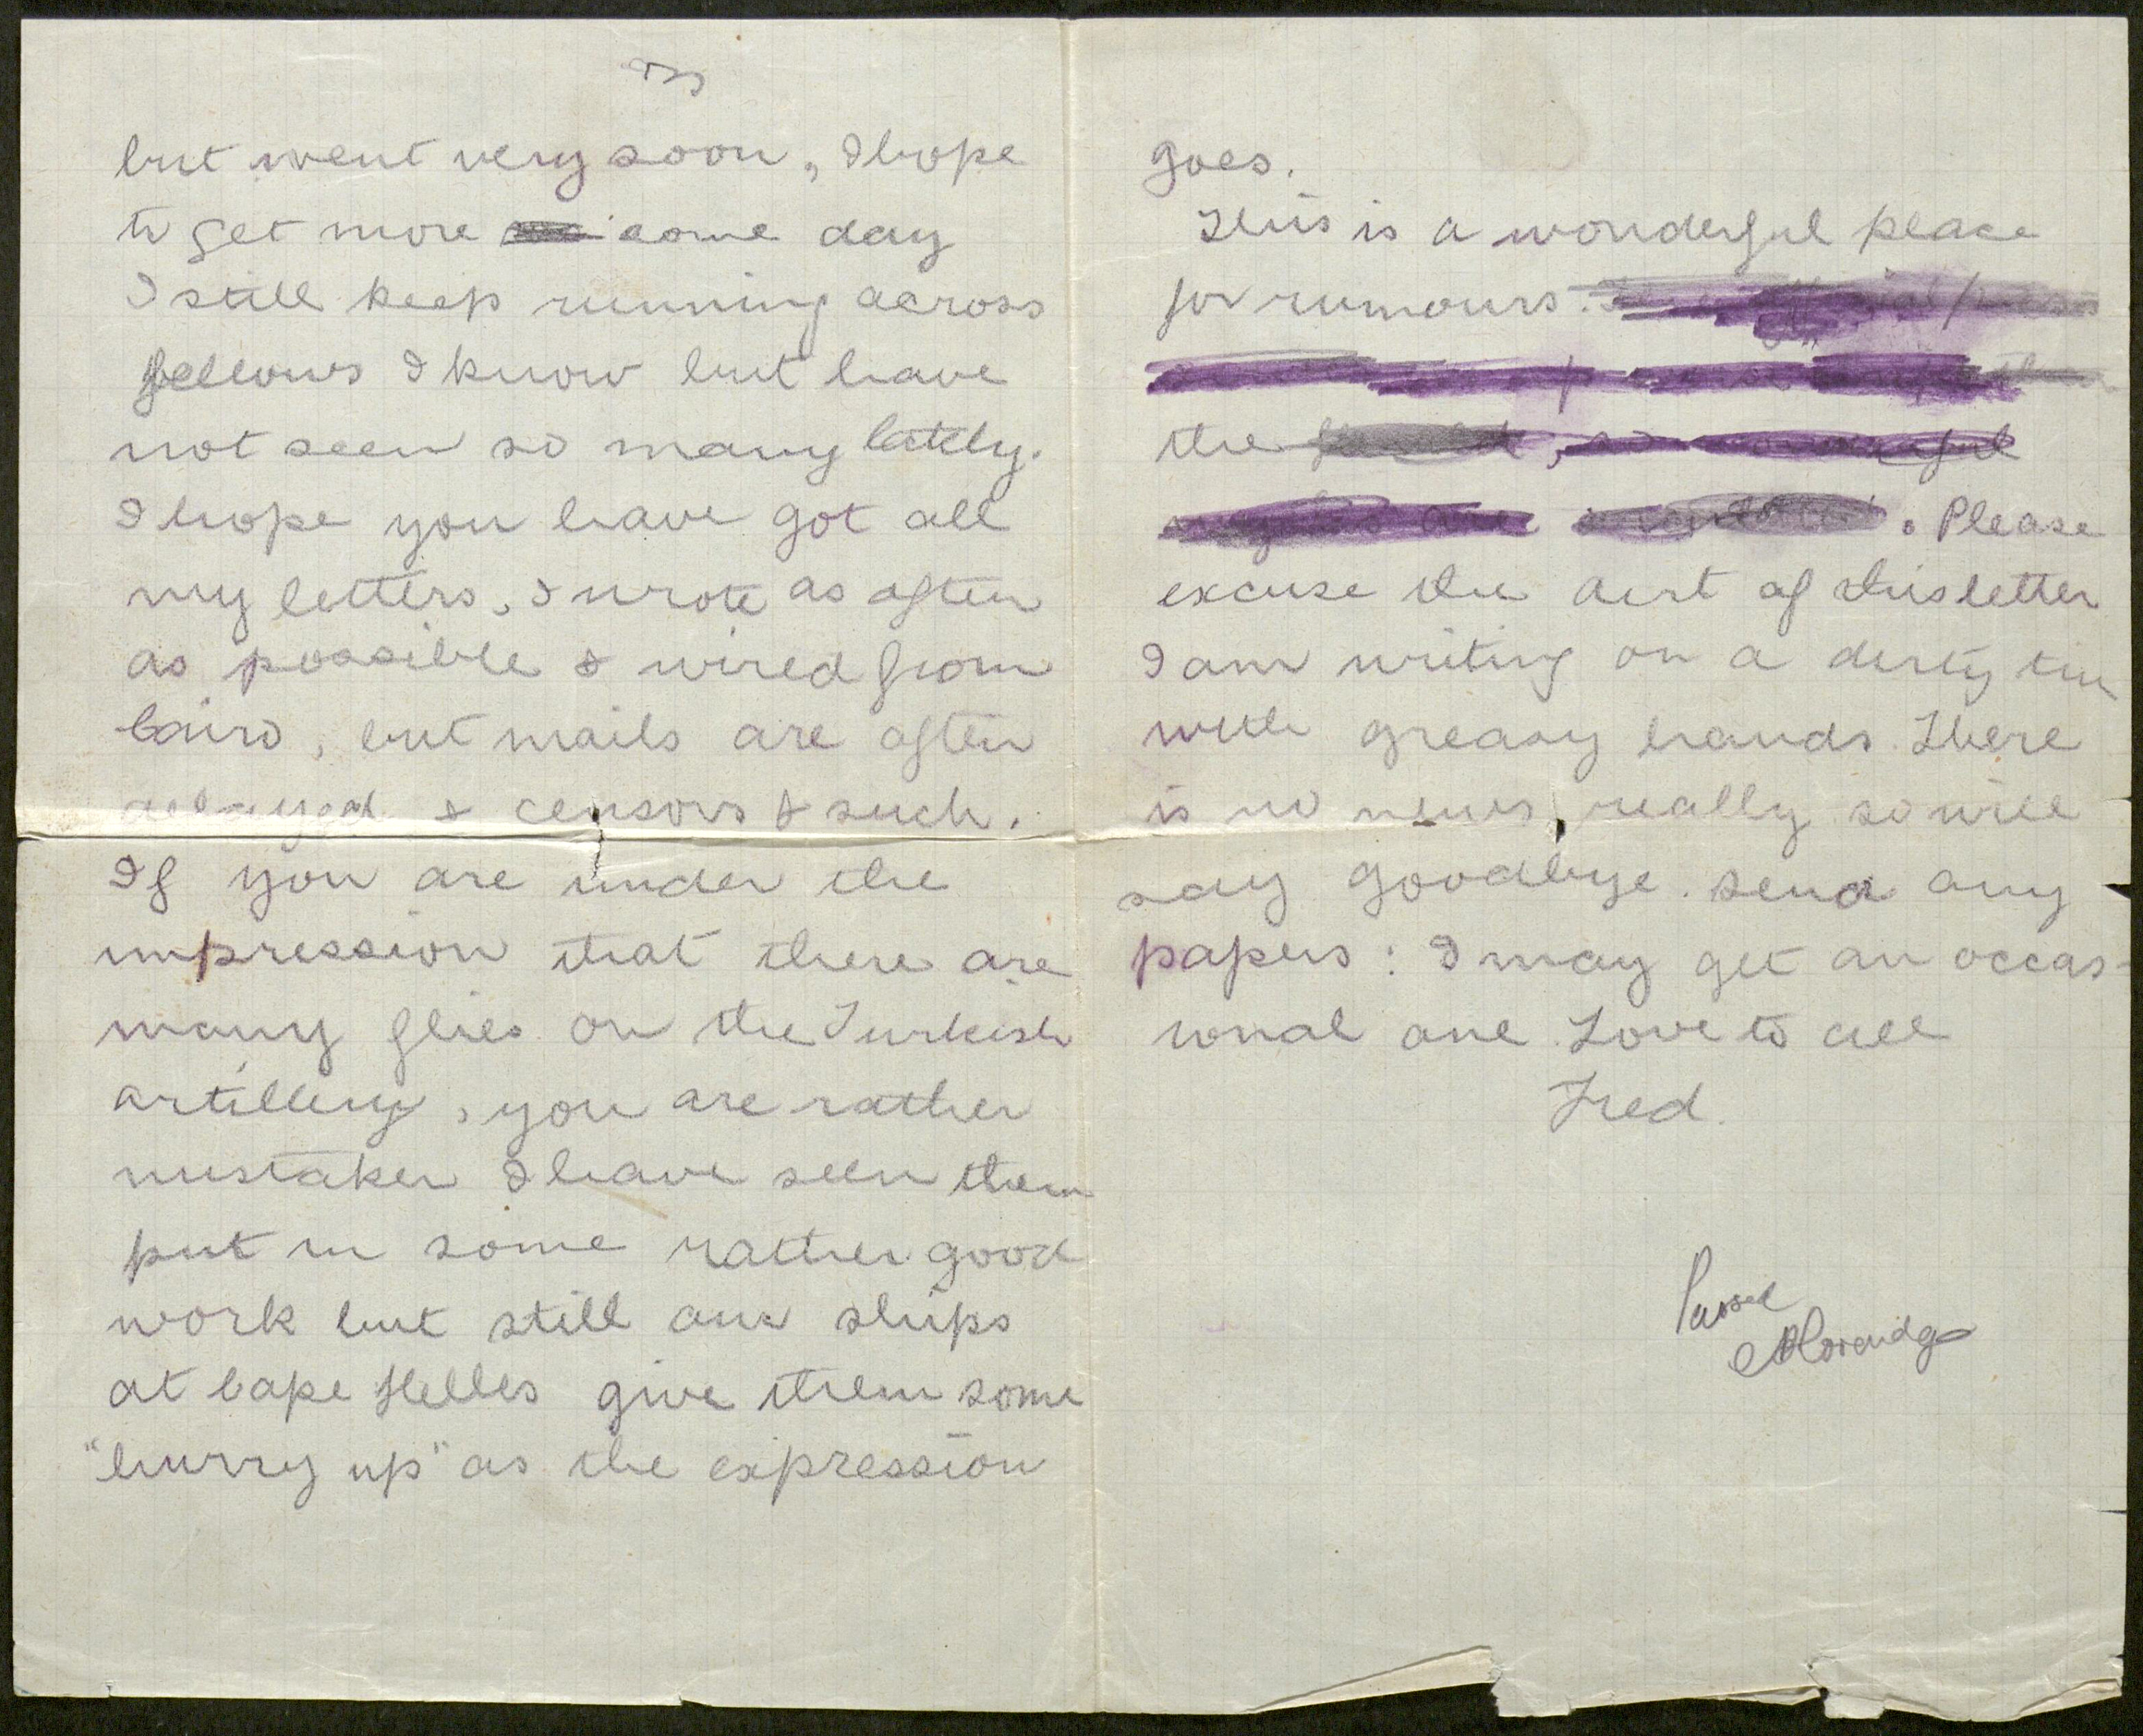 but went very soon, I hope
to get more some day
I still keep running across
fellows I know but have
not seen so many lately.
I hope you have got all
my letters, I wrote as often
as possible & wired from
Cairo, but mails are often
delayed & censors & such.
If you are under the
impression that there are
many flies on the Turkish
artillery, you are rather
mistaken I have seen them
put in some rather good
work but still our ships
at Cape Helles give them some
"hurry up" as the expression
goes.
This is a wonderful place
for rumours.
the
. Please
excuse the dirt of this letter
I am writing on a dirty tin
with greasy hands. There
is no news, really so will
say goodbye. Send any
papers: I may get an occas-
ional one. Love to all
Fred.
Passed